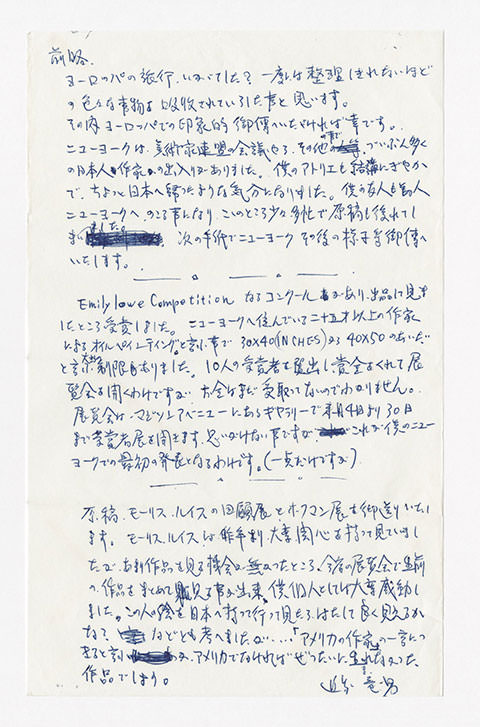 前略.
ヨーロッパの旅行、いかゞでしたか? 一度には整理しきれないほど
の色々な書物を吸收されていらした事と思います。
その内ヨーロッパでの印象的御傳へいたゞければ幸です。
ニューヨークは、美術家連盟の会議やら、その他の 、ずいぶん多く
の日本人作家の出入りがありました。僕のアトリエも結構にぎやか
で、ちょっと日本へ帰ったような気分になりました。僕の友人も 人
ニューヨークへのこる事になり、このところ少々多忙で原稿も後れてし
まいました。次の手紙でニューヨークその後の様子等御傳へ
いたします。
Emily lowe Competition なるコンクールがあり、出品して見ま
したところ受賞しました。ニューヨークへ住んでいる二十五才以上の作家
によるオイルペインティングと言う事で 30×40 (INCHES) から 40×50 のあいだ
と言う制限もありました。10人の受賞者を選出し賞金をくれて展
覧会を開くわけですが、お金はまだ受取ってないのでわかりません。
展覧会は、マジソンアベニューにあるギャラリーで 月4日より30日
まで受賞者展を開きます。思いがけない事ですが、これが僕のニュー
ヨークでの最初の発表となるわけです。(一点だけですが)
原稿、モーリス.ルイスの回顧展とホフマン展を御送りいたし
ます。モーリス.ルイスは昨年 大変関心を持って見ていまし
たが、あまり作品を見る機会が無かったところ、今度の展覧会で生前
の作品をまとめて見る事が出来、僕個人としては大変感動し
ました。この人の絵を日本へ持って行って見たら、はたして良く見えるか
な? などとも考へましたが……「アメリカの作家」の一言につ
きると言いますか、アメリカでなければぜったいに生れなかった
作品でしょう。